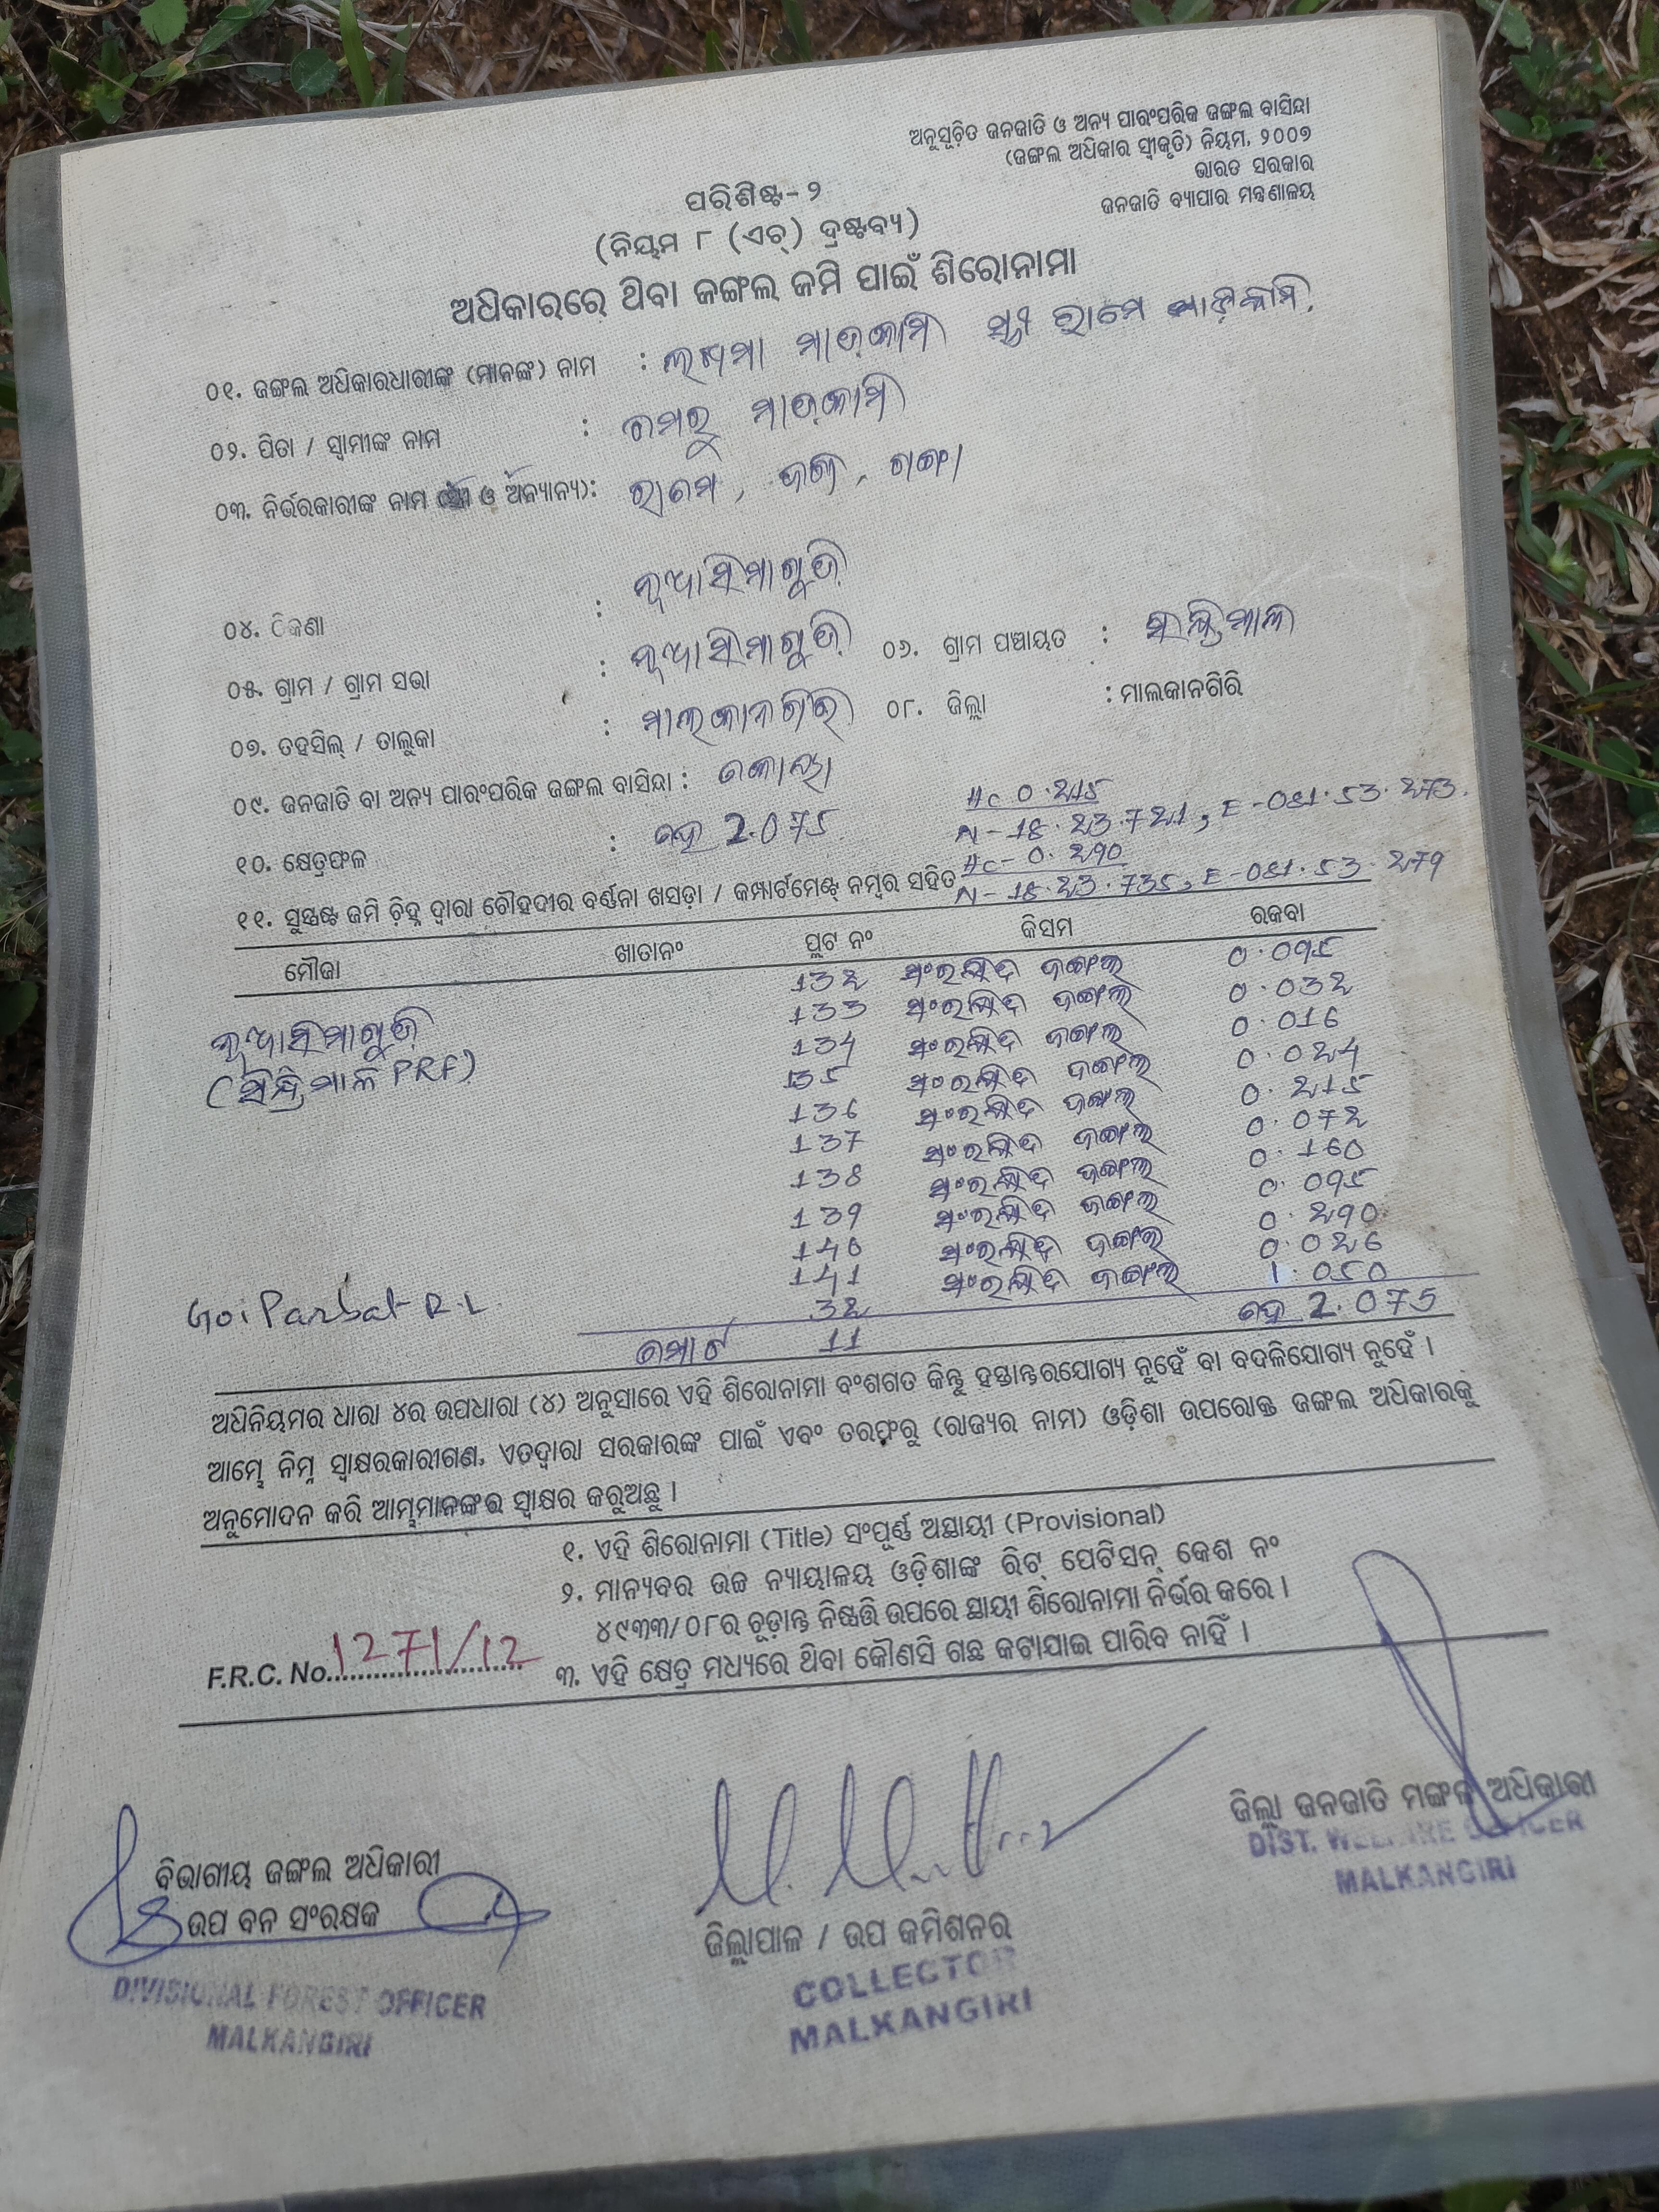 ଅନୁସୂଚିତ ଜନଜାତି ଓ ଅନ୍ୟ ପାରଂପରିକ ଜଙ୍ଗଲ ବାସିନ୍ଦା
(ଜଙ୍ଗଲ ଅଧିକାର ସ୍ୱୀକୃତି) ନିୟମ, ୨୦୦୭
ଭାରତ ସରକାର
ଜନଜାତି ବ୍ୟାପାର ମନ୍ତ୍ରଣାଳୟ
ପରିଶିଷ୍ଟ-୨
(ନିୟମ ୮ (ଏଚ୍) ଦ୍ରଷ୍ଟବ୍ୟ)
ଅଧିକାରରେ ଥିବା ଜଙ୍ଗଲ ଜମି ପାଇଁ ଶିରୋନାମା
୦୧. ଜଙ୍ଗଲ ଅଧିକାରଧାରୀଙ୍କ (ମାନଙ୍କ) ନାମ : ଲଖମା ମାଡ଼କାମି ସ୍ତ୍ରୀ ରାମେ ମାଡ଼କାମି
୦୨. ପିତା / ସ୍ୱାମୀଙ୍କ ନାମ : ମାଡ଼କାମି
୦୩. ନିର୍ଭରକାରୀଙ୍କ ନାମ (ସ୍ତ୍ରୀ ଓ ଅନ୍ୟାନ୍ୟ): ରାମେ, ଗଙ୍ଗା
୦୪. ଠିକଣା : ନୂଆସିମାଗୁଡ଼ି
୦୫. ଗ୍ରାମ / ଗ୍ରାମ ସଭା : ନୂଆସିମାଗୁଡ଼ି ୦୬. ଗ୍ରାମ ପଞ୍ଚାୟତ :
୦୭. ତହସିଲ୍ / ତାଲୁକା : ମାଲକାନଗିରି ୦୮. ଜିଲ୍ଲା : ମାଲକାନଗିରି
୦୯. ଜନଜାତି ବା ଅନ୍ୟ ପାରଂପରିକ ଜଙ୍ଗଲ ବାସିନ୍ଦା : କୋୟା
୧୦. କ୍ଷେତ୍ରଫଳ : ହେ 2.075
Hc 0.215
N-18.23.721, E-081.53.273.
Hc-0.290
N-18.23.735, E-081.53.279
୧୧. ସୁସ୍ପଷ୍ଟ ଜମି ଚିହ୍ନ ଦ୍ୱାରା ଚୌହଦୀର ବର୍ଣ୍ଣନା ଖସଡ଼ା / କମ୍ପାର୍ଟମେଣ୍ଟ ନମ୍ବର ସହିତ
ମୌଜା ଖାତାନଂ ପ୍ଲଟ ନଂ କିସମ ରକବା
ନୂଆସିମାଗୁଡ଼ି 132 ସଂରକ୍ଷିତ ଜଙ୍ଗଲ 0.095
(PRF) 133 ସଂରକ୍ଷିତ ଜଙ୍ଗଲ 0.032
134 ସଂରକ୍ଷିତ ଜଙ୍ଗଲ 0.016
135 ସଂରକ୍ଷିତ ଜଙ୍ଗଲ 0.024
136 ସଂରକ୍ଷିତ ଜଙ୍ଗଲ 0.215
137 ସଂରକ୍ଷିତ ଜଙ୍ଗଲ 0.072
138 ସଂରକ୍ଷିତ ଜଙ୍ଗଲ 0.160
139 ସଂରକ୍ଷିତ ଜଙ୍ଗଲ 0.095
140 ସଂରକ୍ଷିତ ଜଙ୍ଗଲ 0.290
141 ସଂରକ୍ଷିତ ଜଙ୍ଗଲ 0.026
Goi Parbat R.L 32 1.050
ମୋଟ 11 ହେ 2.075
ଅଧିନିୟମର ଧାରା ୪ର ଉପଧାରା (୪) ଅନୁସାରେ ଏହି ଶିରୋନାମା ବଂଶଗତ କିନ୍ତୁ ହସ୍ତାନ୍ତରଯୋଗ୍ୟ ନୁହେଁ ବା ବଦଳିଯୋଗ୍ୟ ନୁହେଁ ।
ଆମ୍ଭେ ନିମ୍ନ ସ୍ୱାକ୍ଷରକାରୀଗଣ, ଏତଦ୍ୱାରା ସରକାରଙ୍କ ପାଇଁ ଏବଂ ତରଫରୁ (ରାଜ୍ୟର ନାମ) ଓଡ଼ିଶା ଉପରୋକ୍ତ ଜଙ୍ଗଲ ଅଧିକାରକୁ
ଅନୁମୋଦନ କରି ଆମ୍ଭମାନଙ୍କର ସ୍ୱାକ୍ଷର କରୁଅଛୁ ।
୧. ଏହି ଶିରୋନାମା (Title) ସଂପୂର୍ଣ୍ଣ ଅସ୍ଥାୟୀ (Provisional)
୨. ମାନ୍ୟବର ଉଚ୍ଚ ନ୍ୟାୟାଳୟ ଓଡ଼ିଶାଙ୍କ ରିଟ୍ ପେଟିସନ୍ କେଶ ନଂ
୪୯୩୩/୦୮ର ଚୂଡ଼ାନ୍ତ ନିଷ୍ପତ୍ତି ଉପରେ ସ୍ଥାୟୀ ଶିରୋନାମା ନିର୍ଭର କରେ ।
F.R.C. No. 1271/12 ୩. ଏହି କ୍ଷେତ୍ର ମଧ୍ୟରେ ଥିବା କୌଣସି ଗଛ କଟାଯାଇ ପାରିବ ନାହିଁ ।
ଜିଲ୍ଲା ଜନଜାତି ମଙ୍ଗଳ ଅଧିକାରୀ
DIST. WELFARE OFFICER
MALKANGIRI
ବିଭାଗୀୟ ଜଙ୍ଗଲ ଅଧିକାରୀ
ଉପ ବନ ସଂରକ୍ଷକ
DIVISIONAL FOREST OFFICER
MALKANGIRI
ଜିଲ୍ଲାପାଳ / ଉପ କମିଶନର
COLLECTOR
MALKANGIRI